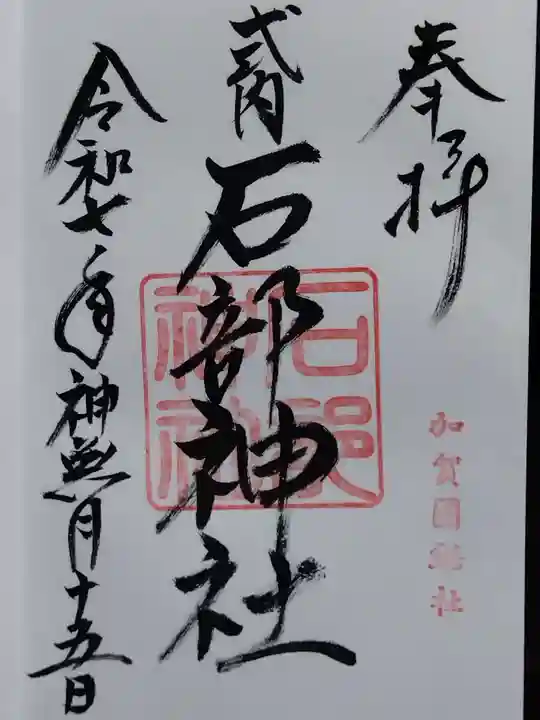 奉拝
加賀国総社
式内
石部神社
石部神社
令和七年神無月十五日